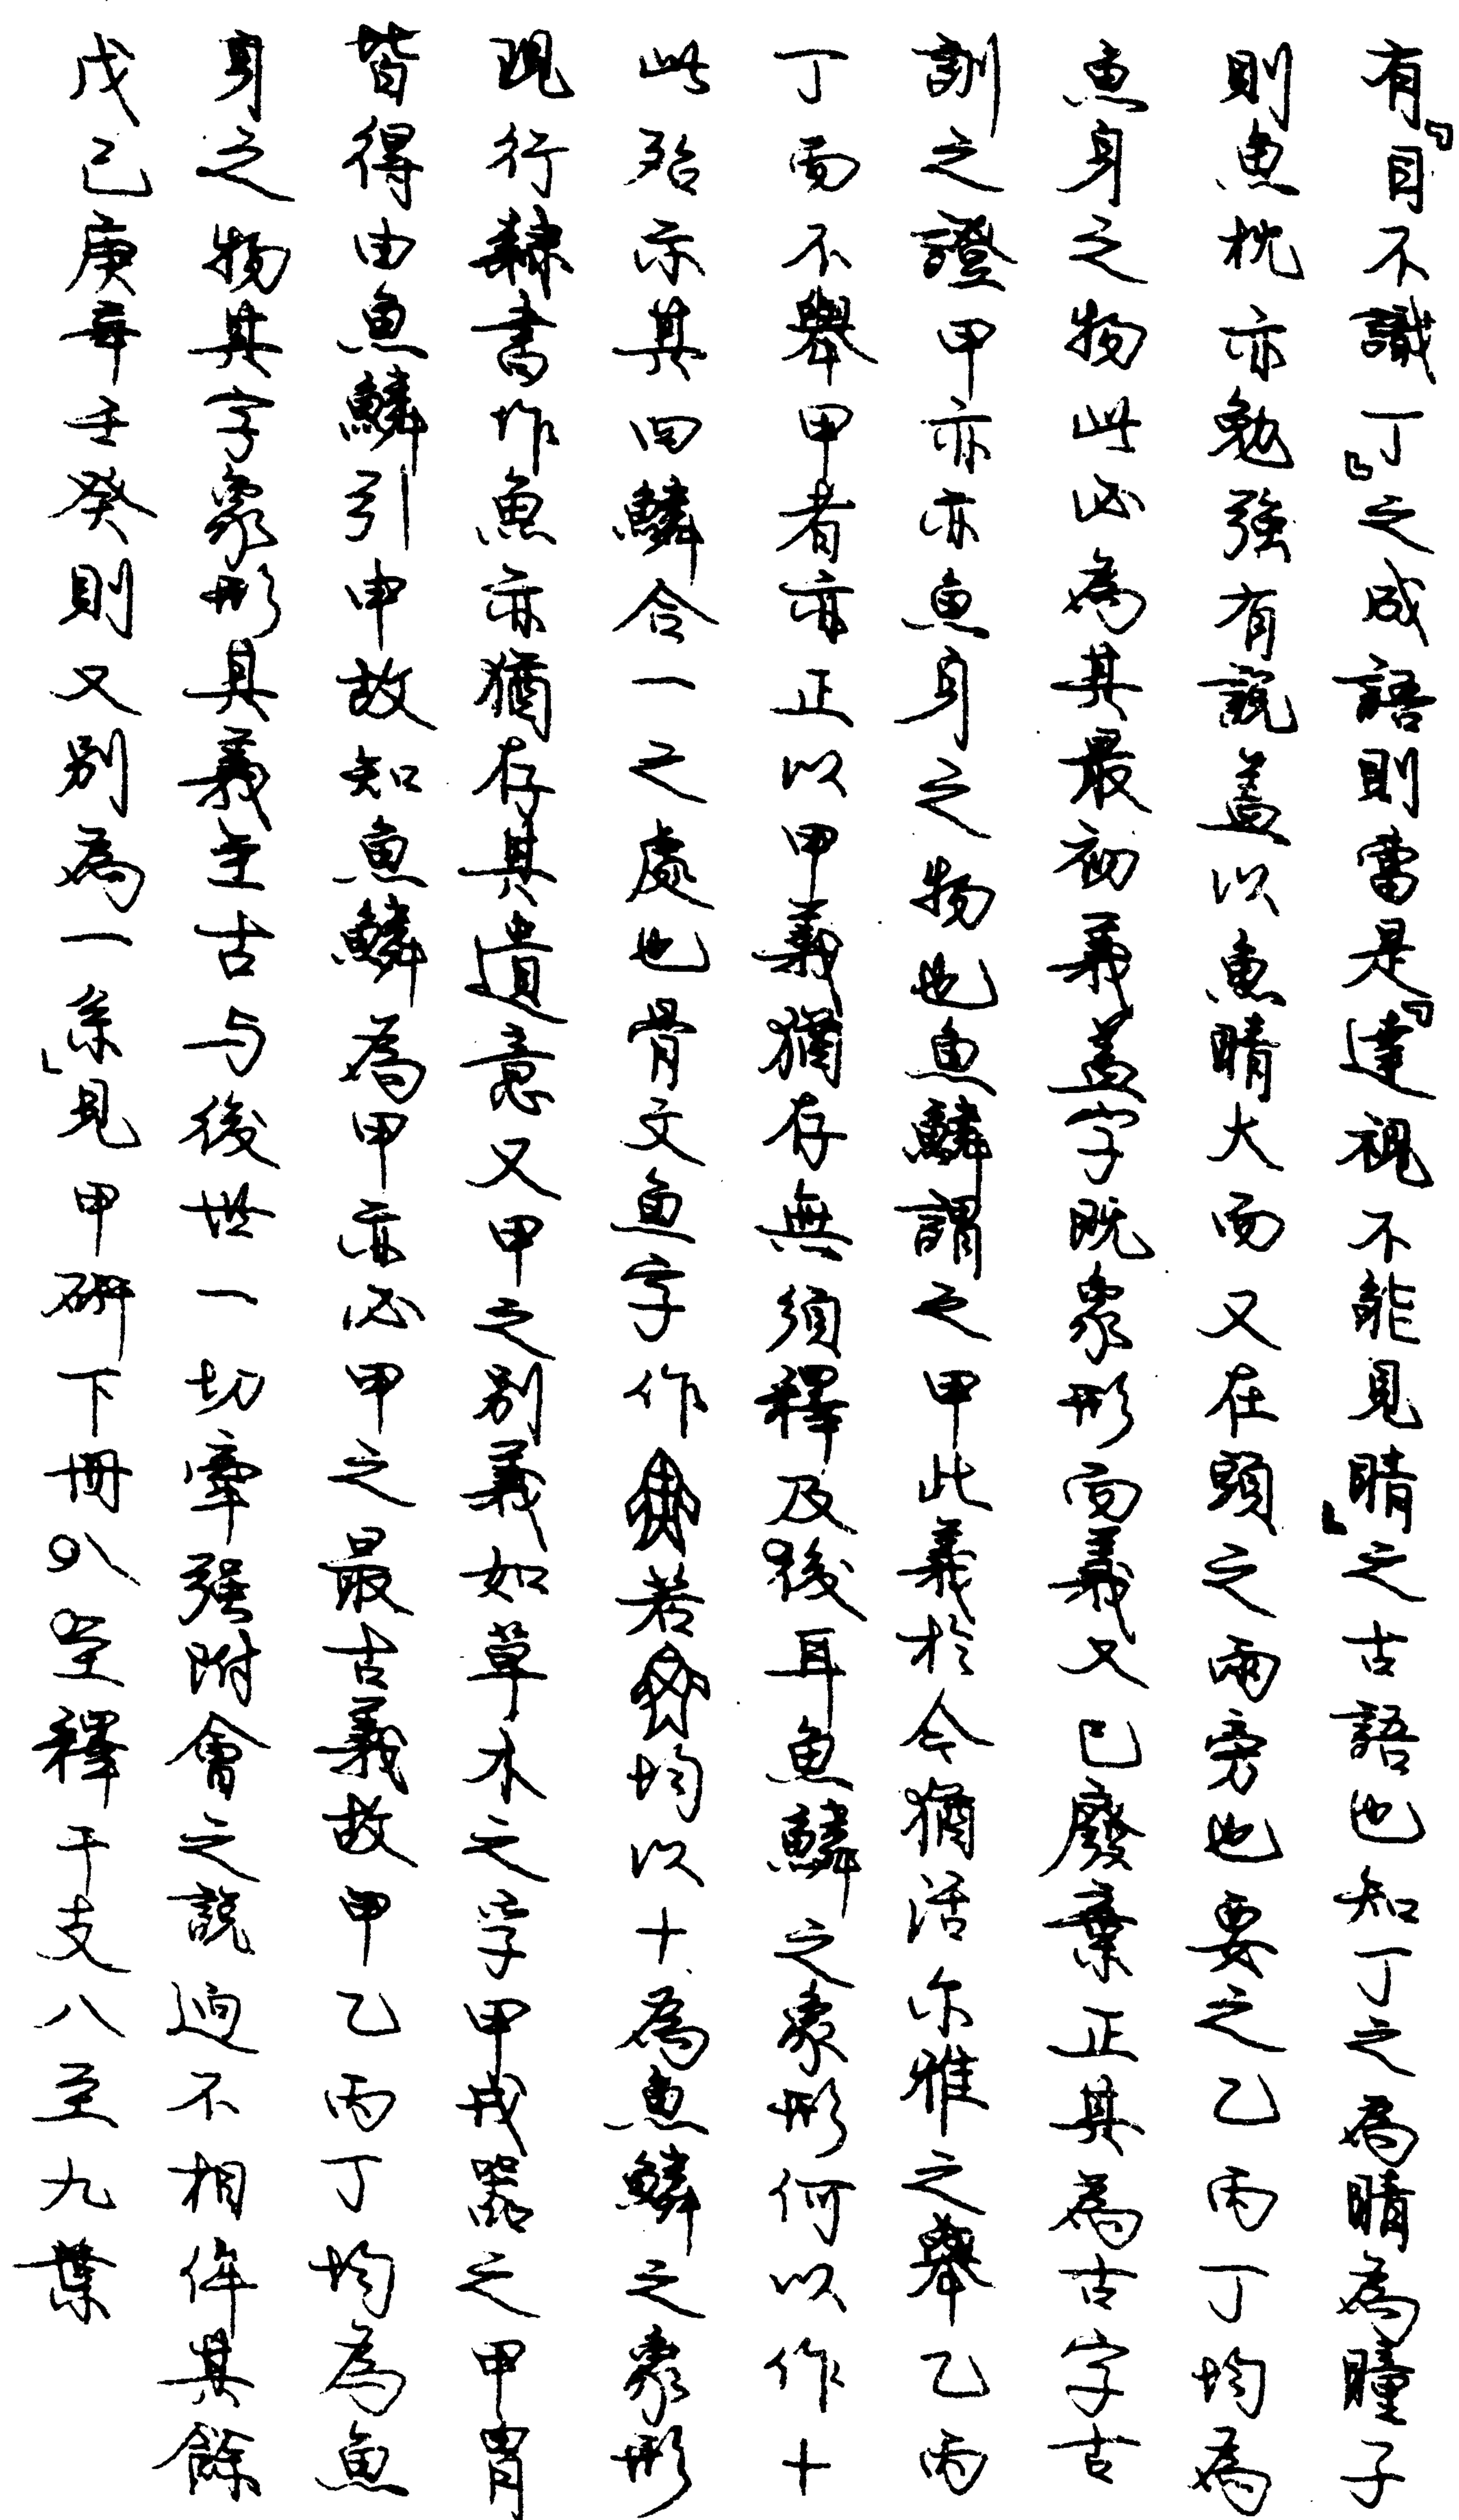 有『目不識丁』之成語則當是『達視不能見睛』之古語也知丁之為睛為瞳子
則魚枕亦勉強有說蓋以魚睛大而又在頭之兩旁也要之乙丙丁均為
魚身之物此必為其最初義蓋字既象形而義又已廢棄正其為古字古
訓之證甲亦亦魚身之物也魚鱗謂之甲此義於今猶活尔雅之舉乙丙
丁而不舉甲者亦正以甲義猶存無須釋及後耳魚鱗之象形何以作十
此殆示其四鱗合一之處也骨文魚字作若均以十為魚鱗之象形
現行隸書作魚亦猶存其遺意又甲之別義如草木之孚甲戎器之甲胄
皆得由魚鱗引申故知魚鱗為甲亦必甲之最古義故甲乙丙丁均為魚
身之物其字象形其義至古与後世一切牽强附會之說迥不相侔其餘
戊己庚辛壬癸則又別為一系」見甲研下冊八至釋干支八至九葉